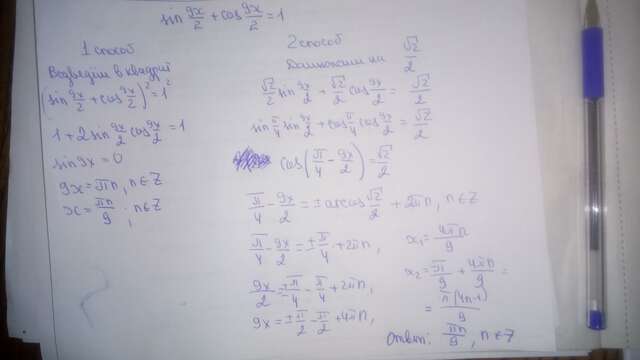 sin 9x/2 + cos 9x/2 = 1
1 способ
Возведём в квадрат
(sin 9x/2 + cos 9x/2)² = 1²
1 + 2 sin 9x/2 cos 9x/2 = 1
sin 9x = 0
9x = πn, n∈Z
x = πn/9, n∈Z
2 способ
Домножим на √2/2
√2/2 sin 9x/2 + √2/2 cos 9x/2 = √2/2
sin π/4 sin 9x/2 + cos π/4 cos 9x/2 = √2/2
cos(π/4 - 9x/2) = √2/2
π/4 - 9x/2 = ± arccos √2/2 + 2πn, n∈Z
π/4 - 9x/2 = ± π/4 + 2πn,
9x/2 = ± π/4 - π/4 + 2πn,
9x = ± π/2 - π/2 + 4πn,
x₁ = 4πn/9
x₂ = π/9 + 4πn/9 =
= π(4n+1)/9
Ответ: πn/9, n∈Z